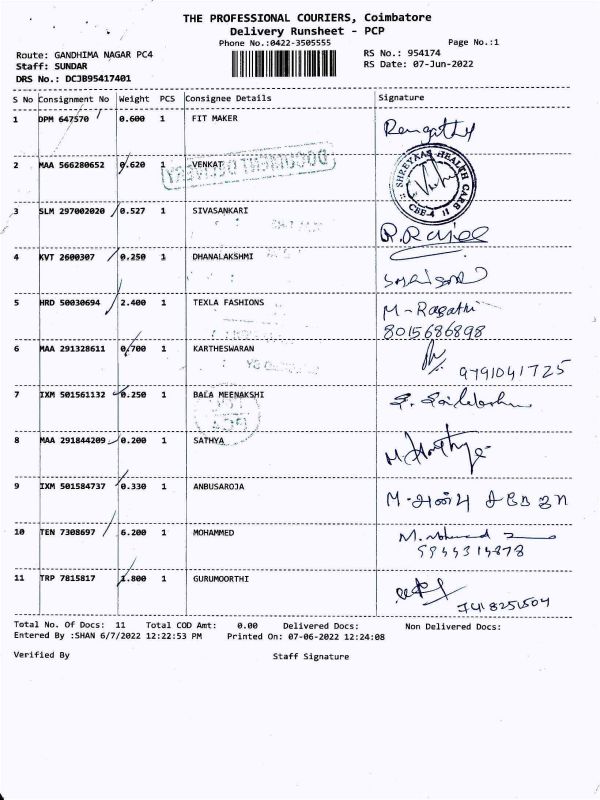 THE PROFESSIONAL COURIERS, Coimbatore
Delivery Runsheet - PCP
Phone No.:0422-3505555
Page No.:1
Route: GANDHIMA NAGAR PC4
RS No.: 954174
Staff: SUNDAR
RS Date: 07-Jun-2022
DRS No.: DCJB95417401
S No Consignment No Weight PCS Consignee Details Signature
1 DPM 647570 0.600 1 FIT MAKER
2 MAA 566280652 0.620 1 VENKAT
DOCUMENT DELIVERY
SHREYAAS HEALTH CARE
CBE-4
3 SLM 297002020 0.527 1 SIVASANKARI R.Rajee
4 KVT 2600307 0.250 1 DHANALAKSHMI
5 HRD 50030694 2.400 1 TEXLA FASHIONS M-Ragathi
8015686898
6 MAA 291328611 0.700 1 KARTHESWARAN 9791041725
7 IXM 501561132 0.250 1 BALA MEENAKSHI
8 MAA 291844209 0.200 1 SATHYA
9 IXM 501584737 0.330 1 ANBUSAROJA
10 TEN 7308697 6.200 1 MOHAMMED
11 TRP 7815817 1.800 1 GURUMOORTHI
7418251504
Total No. Of Docs: 11 Total COD Amt: 0.00 Delivered Docs: Non Delivered Docs:
Entered By :SHAN 6/7/2022 12:22:53 PM Printed On: 07-06-2022 12:24:08
Verified By Staff Signature